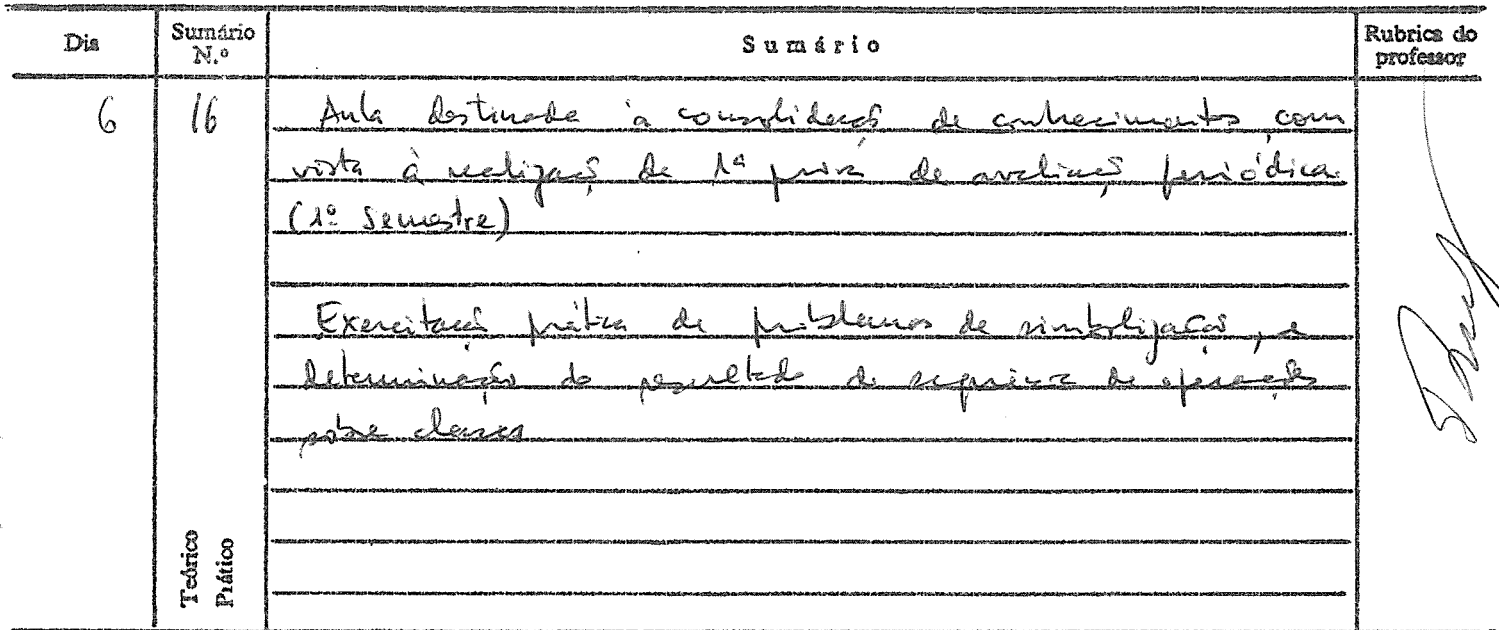 Dia
Sumário N.º
Sumário
Rubrica do professor
6
16
Aula destinada à consolidação de conhecimentos com
vista à realização da 1ª prova de avaliação periódica
(1º Semestre)
Exercitação prática de problemas de simbolização, e
determinação do resultado de sequência de operações
sobre classes
Teórico
Prático